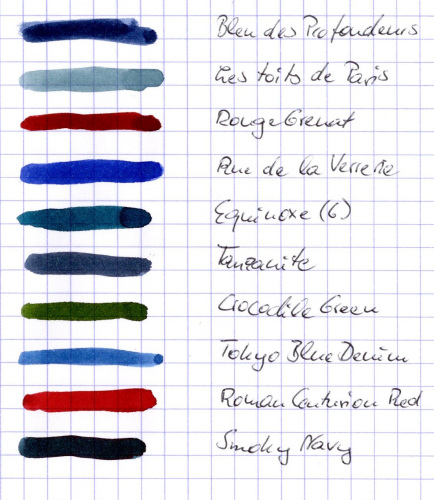 Bleu des Profondeurs
Les toits de Paris
Rouge Grenat
Rue de la Verrerie
Equinoxe (6)
Tanzanite
Crocodile Green
Tokyo Blue Denim
Roman Centurion Red
Smoky Navy